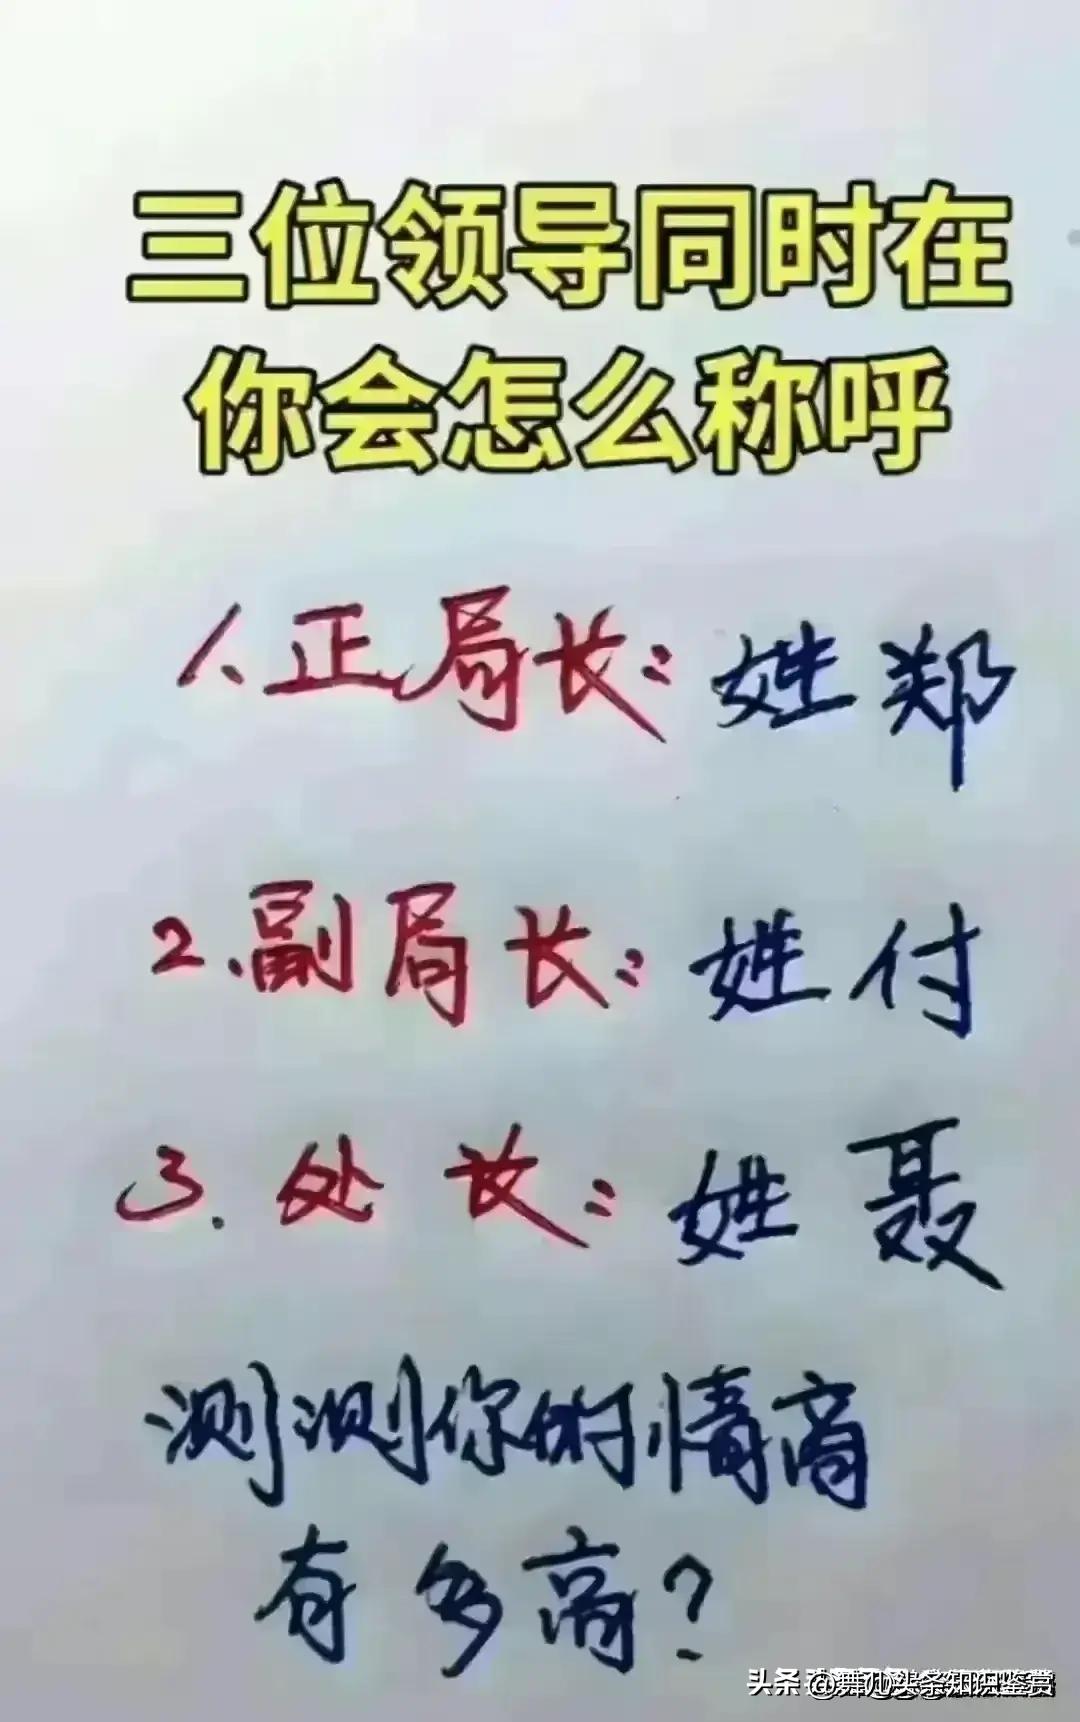 三位领导同时在
你会怎么称呼
1、正局长：姓郑
2.副局长：姓付
3.处长：姓聂
测测你的情商
有多高？
头条 @舞儿头条知识鉴赏